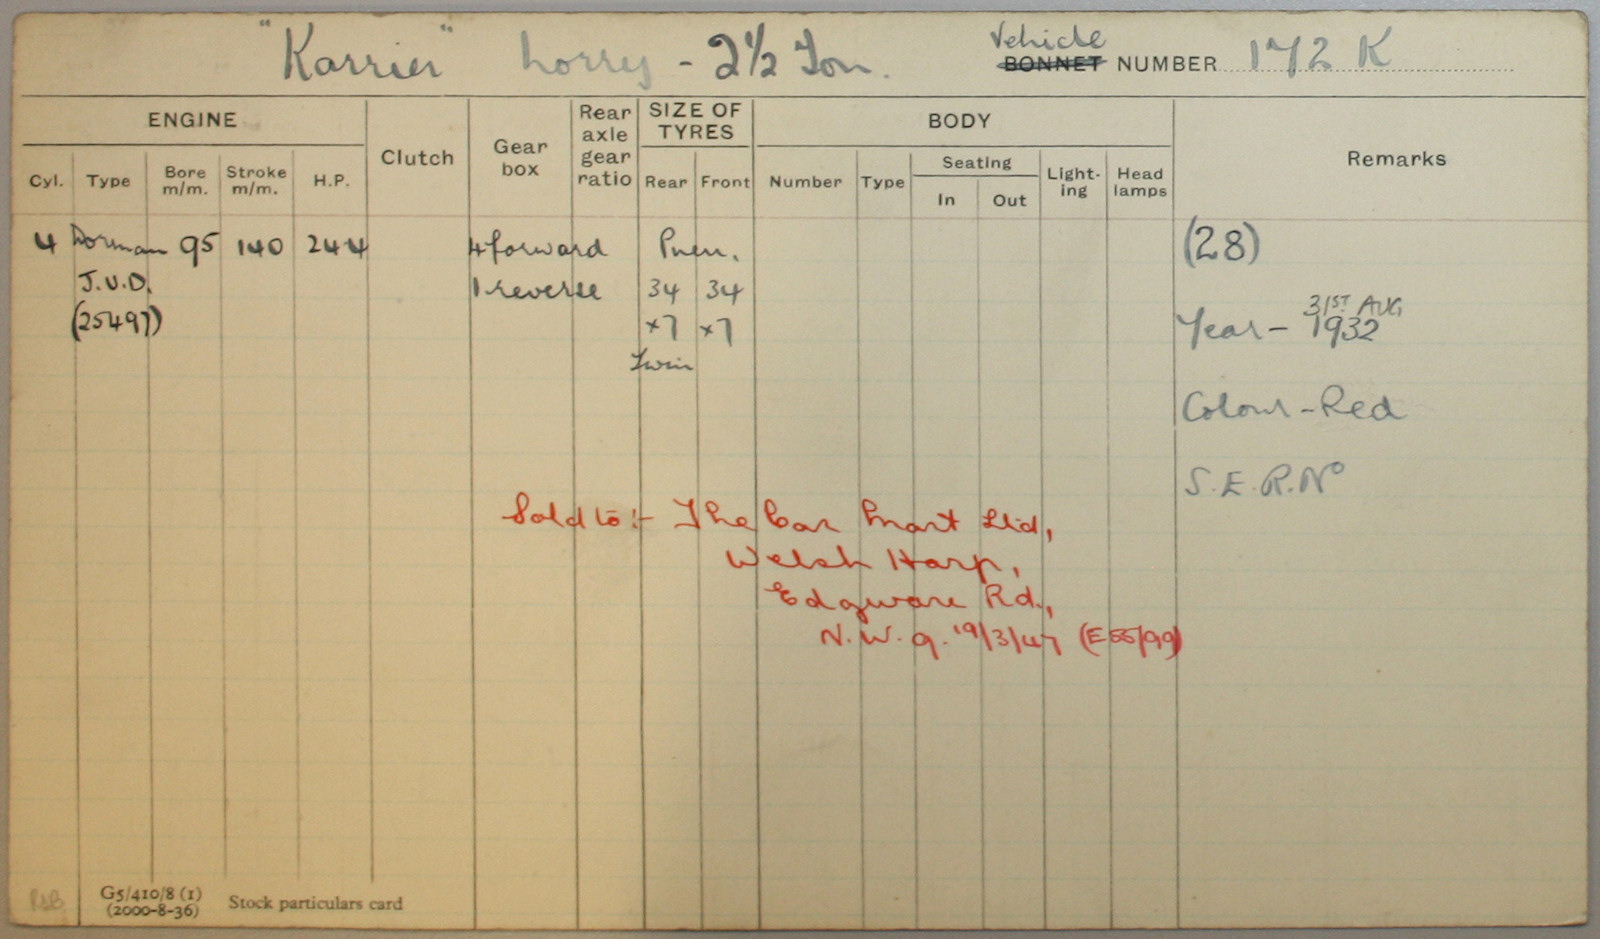 "Karrier" Lorry - 2½ Ton.
Vehicle
BONNET NUMBER 172 K
ENGINE
Clutch
Gear box
Rear axle gear ratio
SIZE OF TYRES
BODY
Remarks
Cyl. Type Bore m/m. Stroke m/m. H.P.
Rear Front
Number Type
Seating
In Out
Light-ing
Head lamps
4 Dorman 95 140 24.4 4 forward Pneu. (28)
J.U.D. 1 reverse 34 34
(25497) x7 x7
Twin
31ST AUG
Year - 1932
Colour - Red
S.E.R. No
Sold to :- The Car Mart Ltd,
Welsh Harp,
Edgware Rd.,
N.W.9. 19/3/47 (E55/99)
G5/410/8 (1)
(2000-8-36)
Stock particulars card